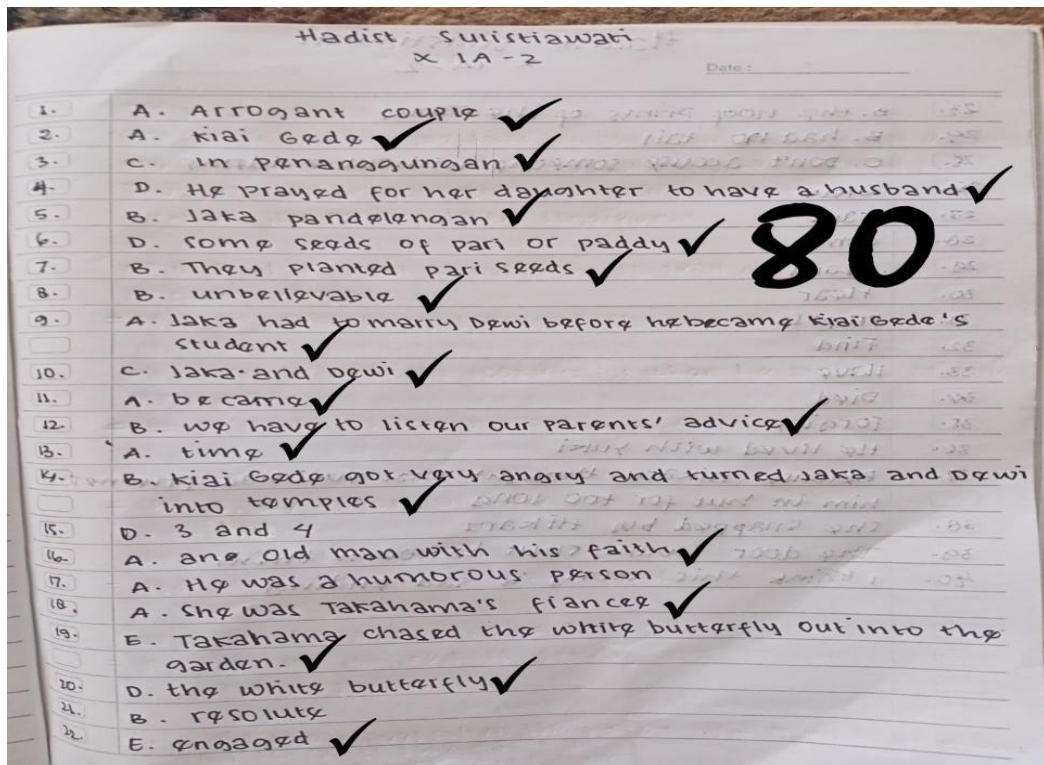 Hadist Sulistiawati
X IA-2
Date :
1. A. Arrogant couple
2. A. Kiai Gede
3. C. In Penanggungan
4. D. He prayed for her daughter to have a husband
5. B. Jaka pandelengan
6. D. Some seeds of pari or paddy
7. B. They planted pari seeds
8. B. unbelievable
9. A. Jaka had to marry Dewi before he became Kiai Gede's
student
10. C. Jaka and Dewi
11. A. became
12. B. we have to listen our parents' advice
13. A. time
14. B. Kiai Gede got very angry and turned Jaka and Dewi
into temples
15. D. 3 and 4
16. A. ane old man with his faith
17. A. He was a humorous person
18. A. She was Takahama's fiancee
19. E. Takahama chased the white butterfly out into the
garden.
20. D. the white butterfly
21. B. resolute
22. E. engaged
80